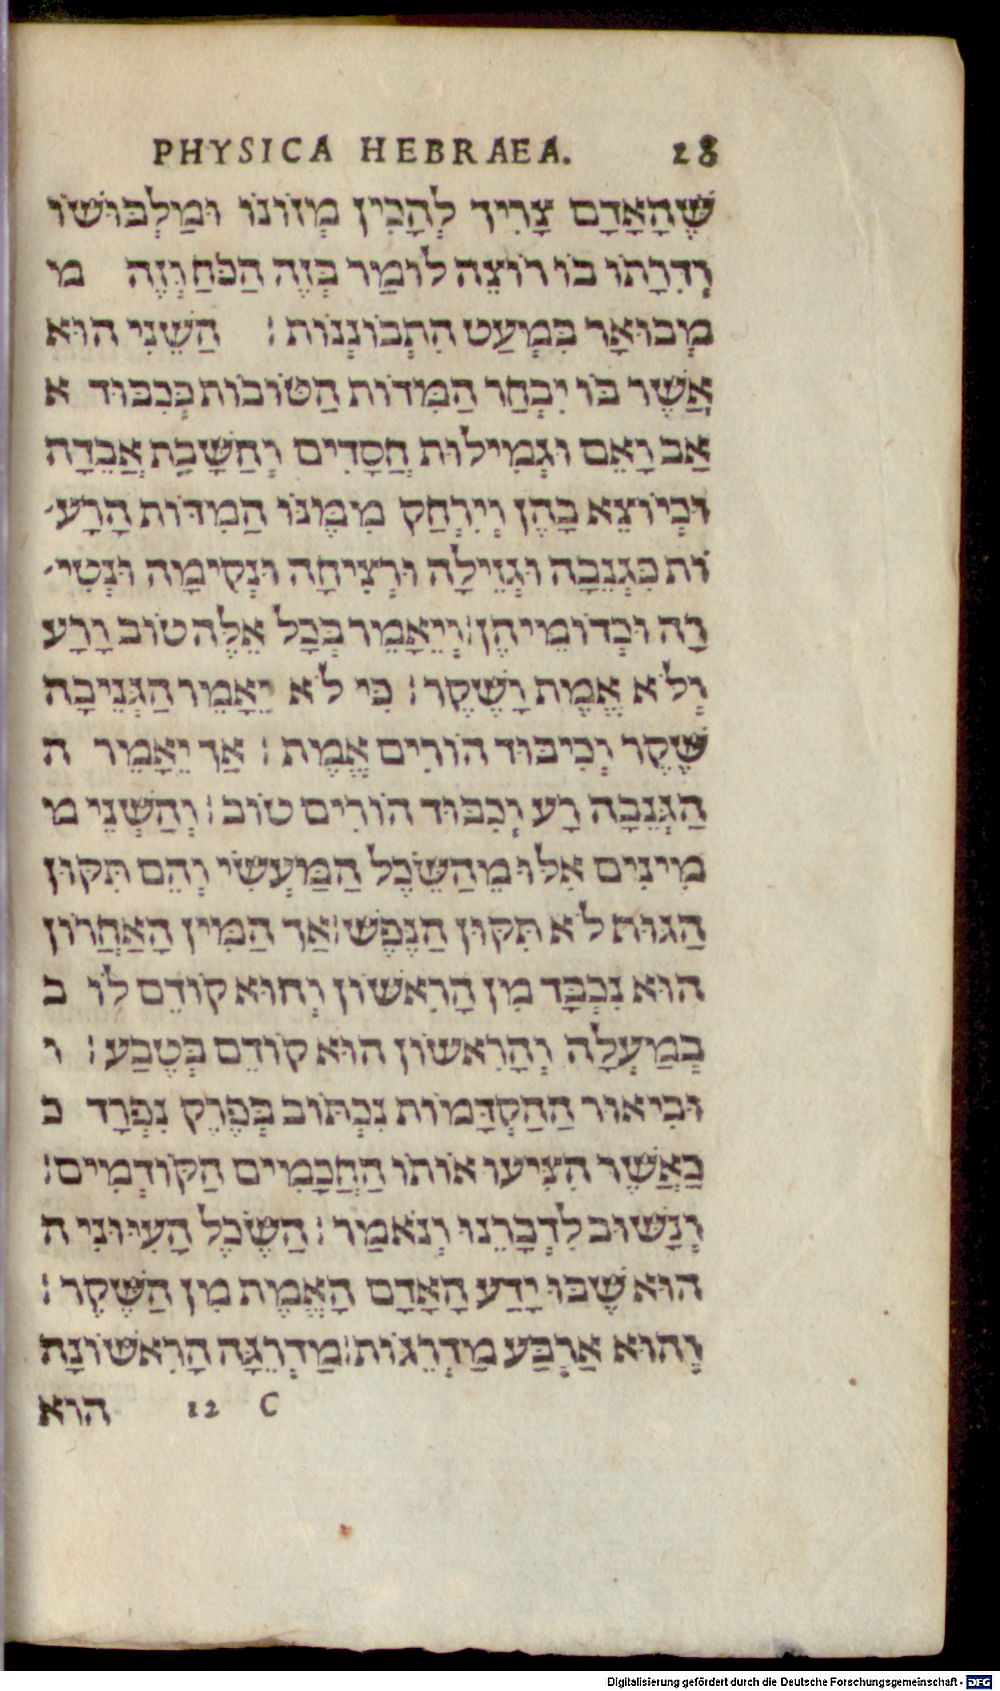 PHYSICA HEBRAEA. 28
שֶׁהָאָדָם צָרִיךְ לְהָכִין מְזוֹנוֹ וּמַלְבּוּשׁוֹ
וְדִּרָתוֹ בּוֹ רוֹצֶה לוֹמַר בְּזֶה הַכֹּחַ וְזֶה מ
מְבוּאָר בִּמְעַט הִתְבּוֹנְנוֹת׃ הַשֵּׁנִי הוּא
אֲשֶׁר בּוֹ יִבְחַר הַמִּדוֹת הַטּוֹבוֹת כְּכִבּוּד א
אַב וָאֵם וּגְמִילוּת חֲסָדִים וְהַשָּׁבַת אֲבֵדָה
וּכְיוֹצֵא בָהֶן וְיִרְחַק מִמֶּנּוּ הַמִּדּוֹת הָרָע־
וֹת כִּגְנֵבָה וּגְזֵילָה וּרְצִיחָה וּנְקִימָה וּנְטִי־
רָה וּכְדוֹמֵיהֶן׃ וְיֵאָמֵר בְּכָל אֵלֶּה טוֹב וָרָע
וְלֹא אֱמֶת וָשֶׁקֶר׃ כִּי לֹא יֵאָמֵר הַגְּנֵיבָה
שֶׁקֶר וְכִיבּוּד הוֹרִים אֱמֶת׃ אַךְ יֵאָמֵר ה
הַגְּנֵבָה רָע וְכִבּוּד הוֹרִים טוֹב׃ וְהַשְּׁנֵי מ
מִינִים אִלּוּ מֵהַשֵּׂכֶל הַמַּעְשִׂי וְהֵם תִּקּוּן
הַגּוּף לֹא תִּקּוּן הַנֶּפֶשׁ׃ אַךְ הַמִּין הָאַחֲרוֹן
הוּא נִכְבָּד מִן הָרִאשׁוֹן וְהוּא קוֹדֵם לוֹ ב
בְּמַעְלָה וְהָרִאשׁוֹן הוּא קוֹדֵם בְּטֶבַע׃ ו
וּבִיאוּר הַהַקְדָּמוֹת נִכְתּוֹב בְּפֶרֶק נִפְרָד כ
כַּאֲשֶׁר הִצִּיעוּ אוֹתוֹ הַחֲכָמִים הַקּוֹדְמִים׃
וְנָשׁוּב לִדְבָרֵנוּ וְנֹאמַר׃ הַשֶּׂכֶל הָעִיּוּנִי ה
הוּא שֶׁבּוֹ יֵדַע הָאָדָם הָאֱמֶת מִן הַשֶּׁקֶר׃
וְהוּא אַרְבַּע מַדְרֵגוֹת׃ מַדְרֵגָה הָרִאשׁוֹנָה
12 C הוא
Digitalisierung gefördert durch die Deutsche Forschungsgemeinschaft - DFG